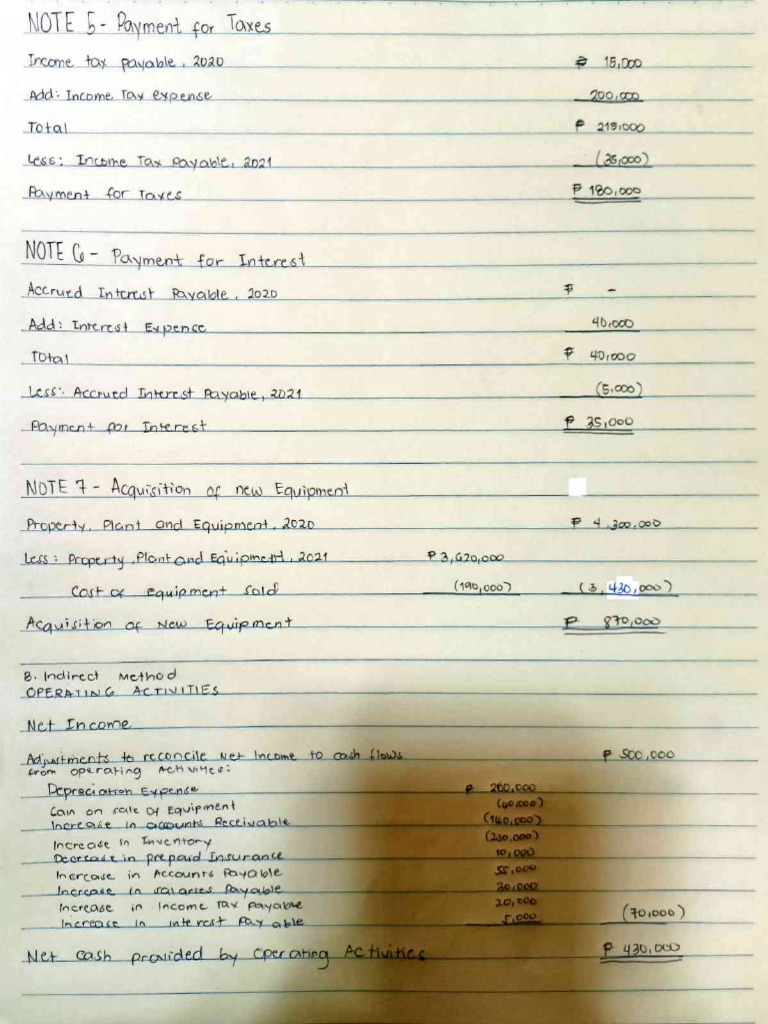 NOTE 5 - Payment for Taxes
Income tax payable, 2020 ₱ 15,000
Add: Income Tax expense 200,000
Total ₱ 215,000
Less: Income Tax Payable, 2021 (35,000)
Payment for Taxes ₱ 180,000
NOTE 6 - Payment for Interest
Accrued Interest Payable, 2020 ₱ -
Add: Interest Expense 40,000
Total ₱ 40,000
Less: Accrued Interest Payable, 2021 (5,000)
Payment for Interest ₱ 35,000
NOTE 7 - Acquisition of new Equipment
Property, Plant and Equipment, 2020 ₱ 4,300,000
Less: Property, Plant and Equipment, 2021 ₱ 3,620,000
Cost of Equipment sold (190,000) (3,430,000)
Acquisition of New Equipment ₱ 870,000
B. Indirect Method
OPERATING ACTIVITIES
Net Income
Adjustments to reconcile Net Income to cash flows ₱ 500,000
from operating Activities:
Depreciation Expense ₱ 260,000
Gain on sale of Equipment (60,000)
Increase in accounts Receivable (160,000)
Increase in Inventory (230,000)
Decrease in prepaid Insurance 10,000
Increase in Accounts Payable 55,000
Increase in salaries Payable 30,000
Increase in Income tax payable 20,000
Increase in interest Payable 5,000 (70,000)
Net cash provided by Operating Activities ₱ 430,000